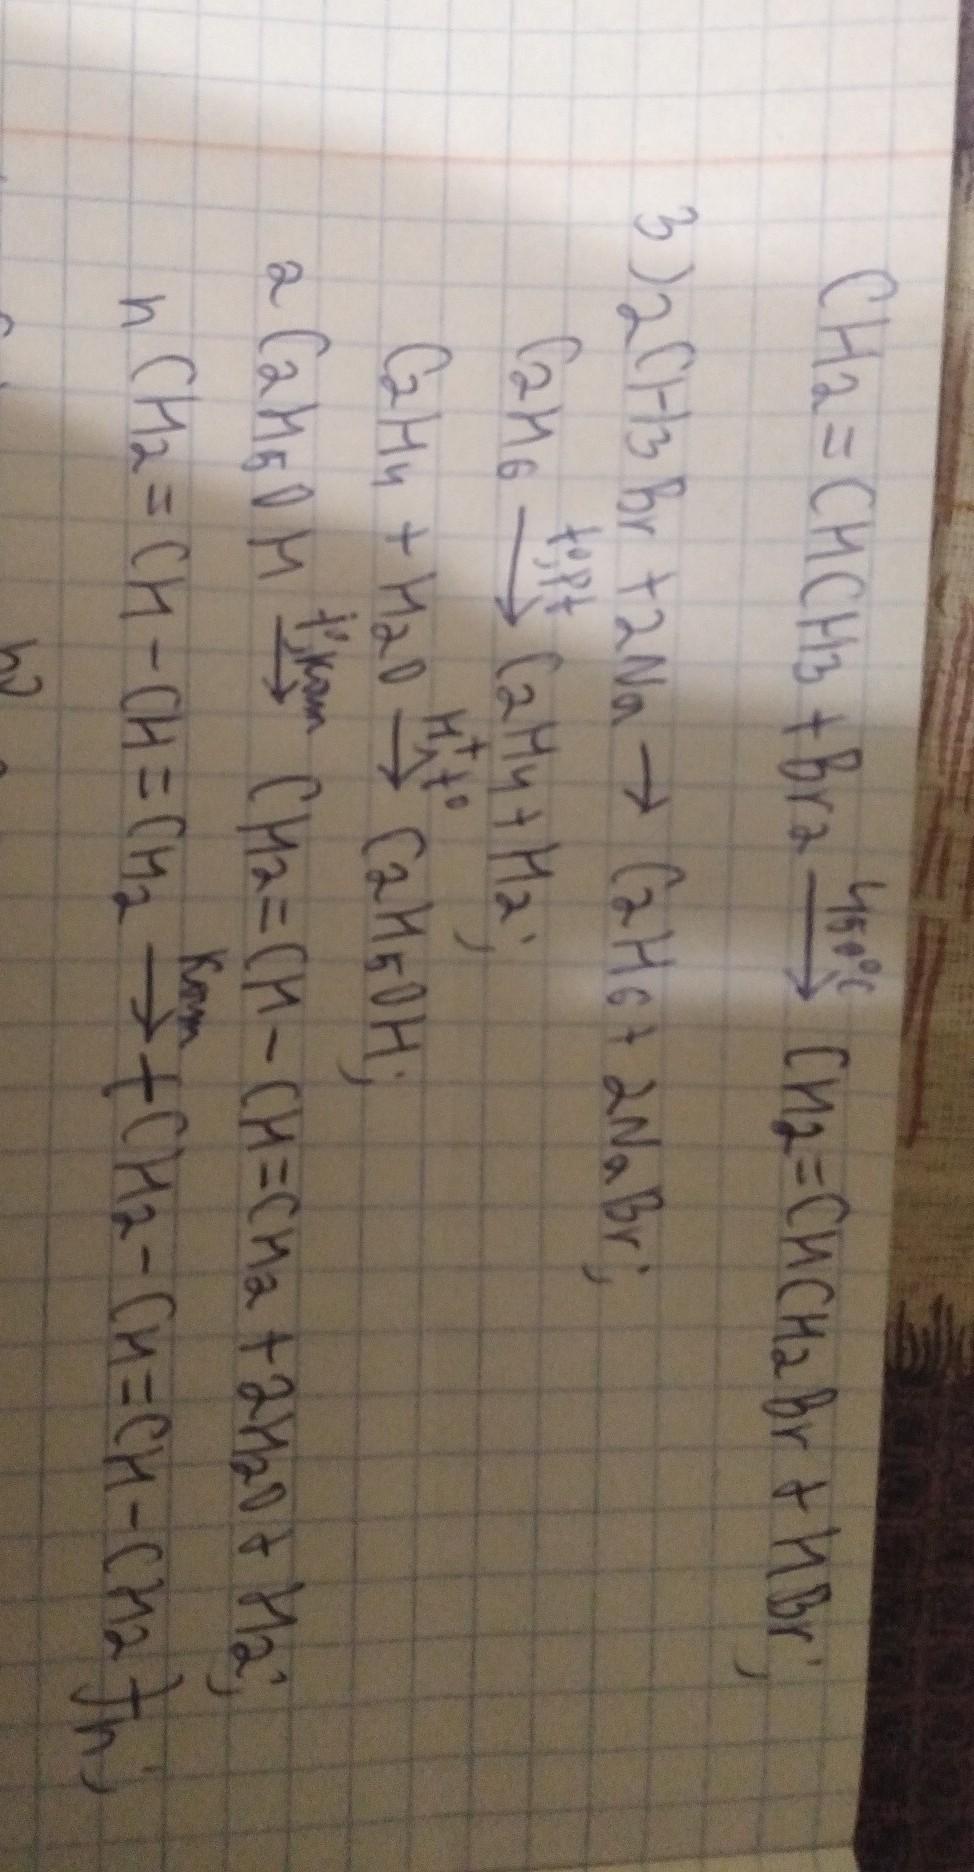 CH2=CHCH3+Br2 —450°C→ CH2=CHCH2Br+HBr;
3) 2CH3Br+2Na→C2H6+2NaBr;
C2H6 —t°,Pt→ C2H4+H2;
C2H4+H2O —H+,t°→ C2H5OH;
2C2H5OH —t°,кат→ CH2=CH-CH=CH2+2H2O+H2;
nCH2=CH-CH=CH2 —кат→ (-CH2-CH=CH-CH2-)n;